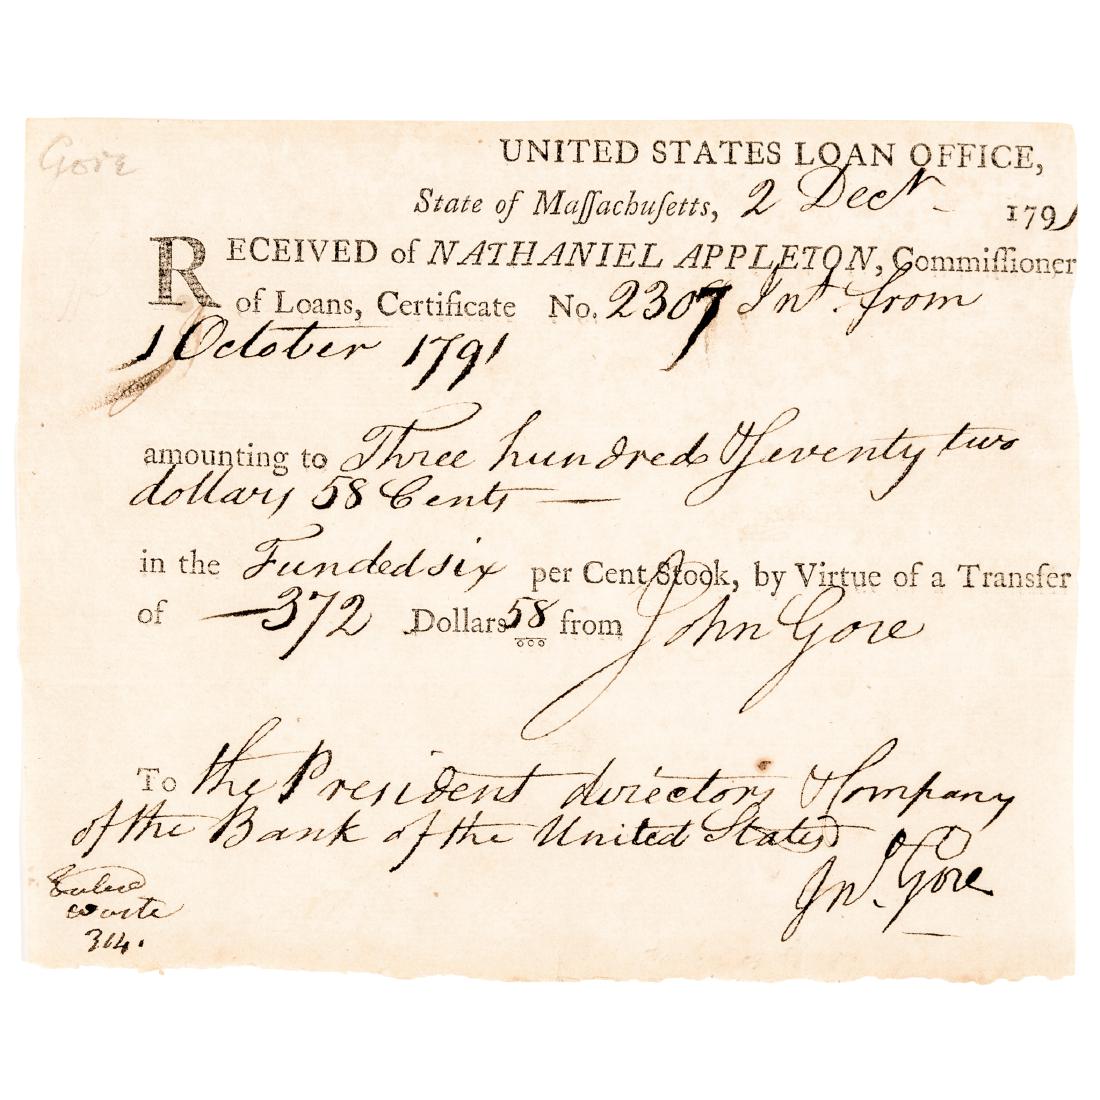 Gore
UNITED STATES LOAN OFFICE,
State of Maſſachuſetts, 2 Decr 1791
RECEIVED of NATHANIEL APPLETON, Commiſſioner
of Loans, Certificate No. 2307 Int. from
1 October 1791
amounting to Three hundred & Seventy two
dollars 58 Cents —
in the Funded six per Cent Stock, by Virtue of a Transfer
of — 372 Dollars 58 from John Gore
To the President directors & Company
of the Bank of the United States
Jno. Gore
Entered
waste
314.